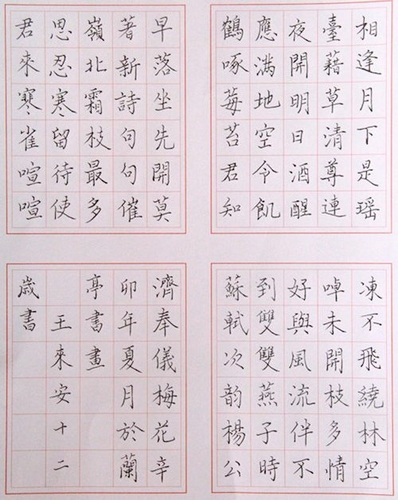 相逢月下是瑶
臺藉草清尊連
夜開明日酒醒
應滿地空令飢
鶴啄莓苔君知
早落坐先開莫
著新詩句句催
嶺北霜枝最多
思忍寒留待使
君來寒雀喧喧
凍不飛繞林空
啅未開枝多情
好與風流伴不
到雙雙燕子時
蘇軾次韵楊公
濟奉儀梅花辛
卯年夏月於蘭
亭書畫
王來安十二
歲書